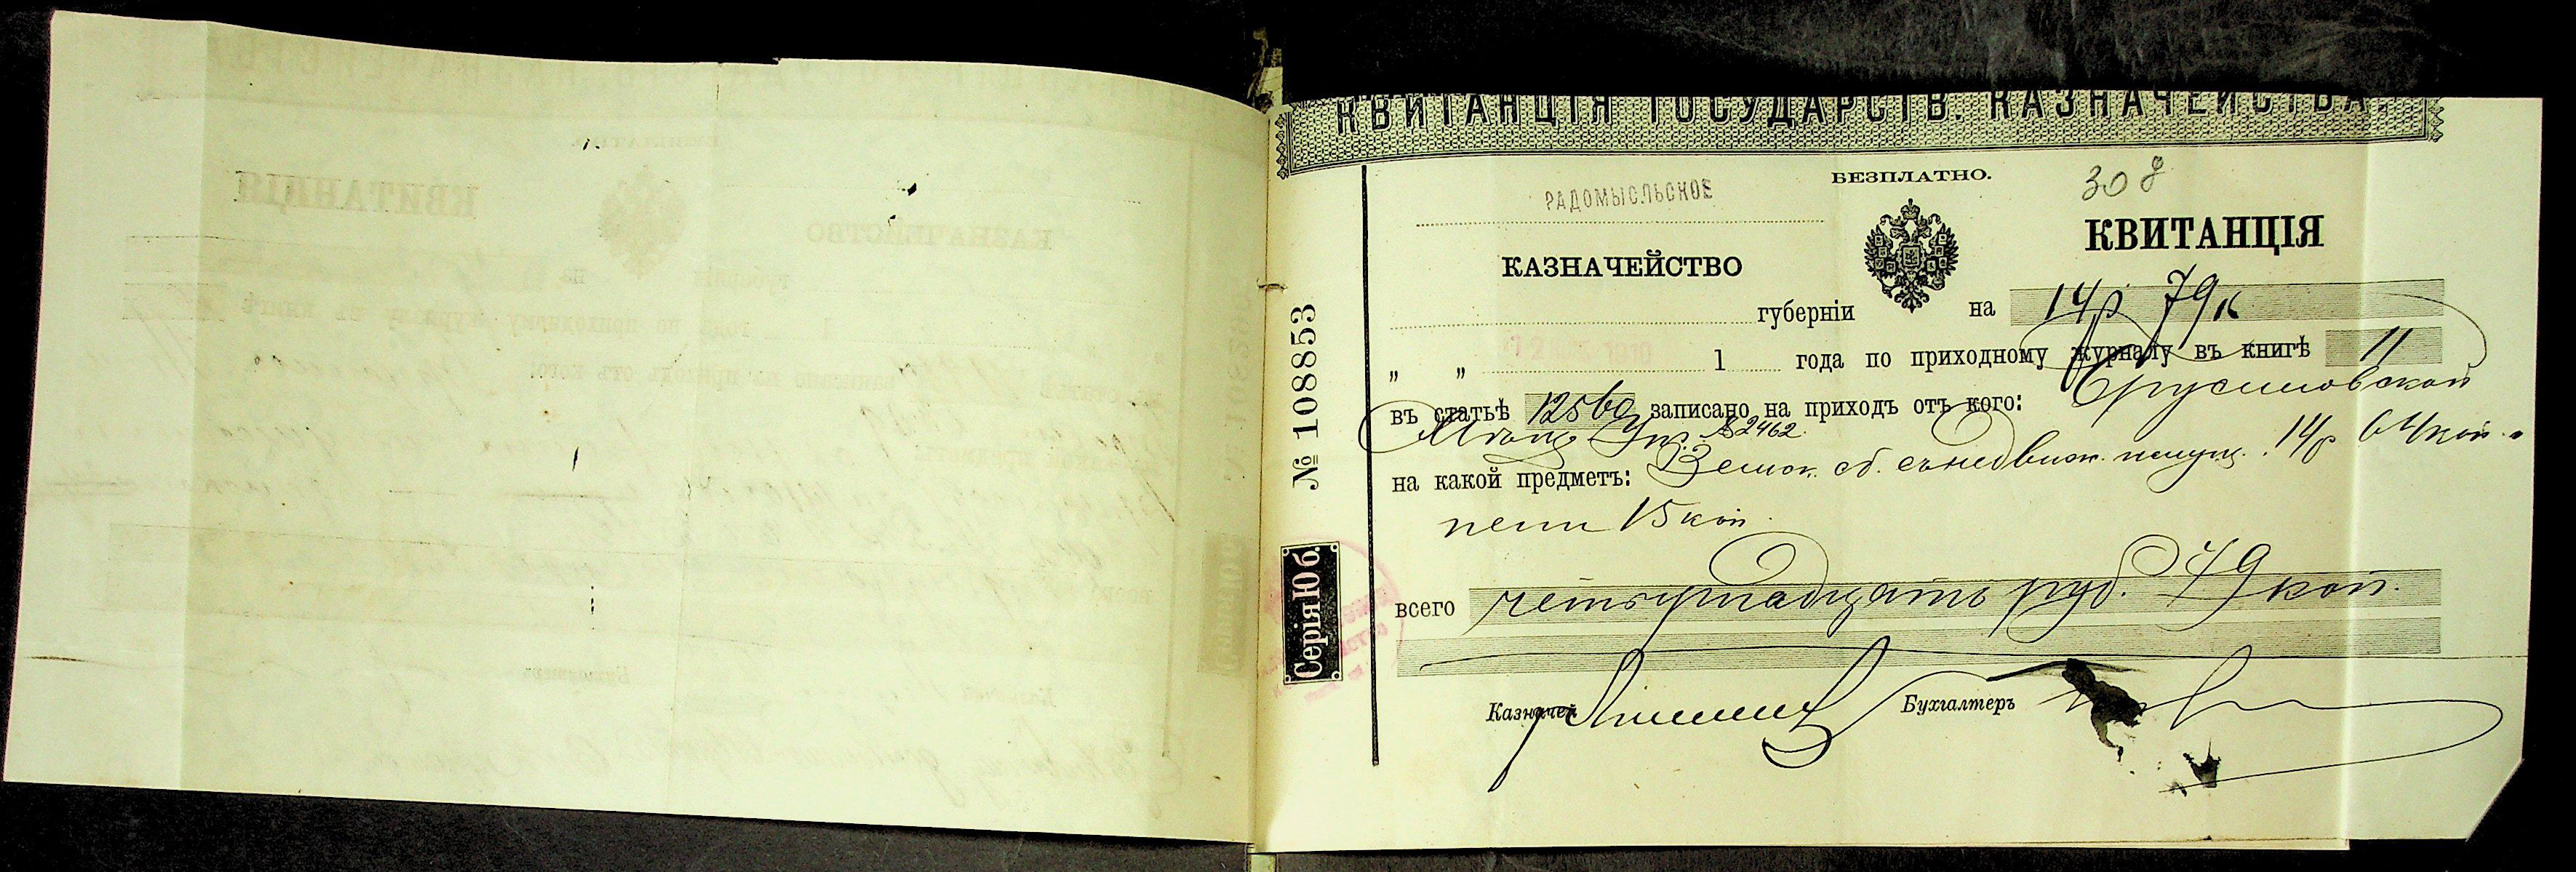 КВИТАНЦІЯ ГОСУДАРСТВ. КАЗНАЧЕЙСТВА.
БЕЗПЛАТНО.
308
РАДОМЫСЛЬСКОЕ
КАЗНАЧЕЙСТВО
КВИТАНЦІЯ
губерніи на 14р 79к
„ „ 1 года по приходному журналу въ книгѣ 11
въ статьѣ 12560 записано на приходъ отъ кого: Брусиловской
Мѣщ. Упр. № 2462
на какой предметъ: Земск. сб. съ недвиж. имущ. 14р 64 коп.
пени 15 коп.
всего четырнадцать руб. 79 коп.
Казначей
Бухгалтеръ
№ 108853
Серія Юб.